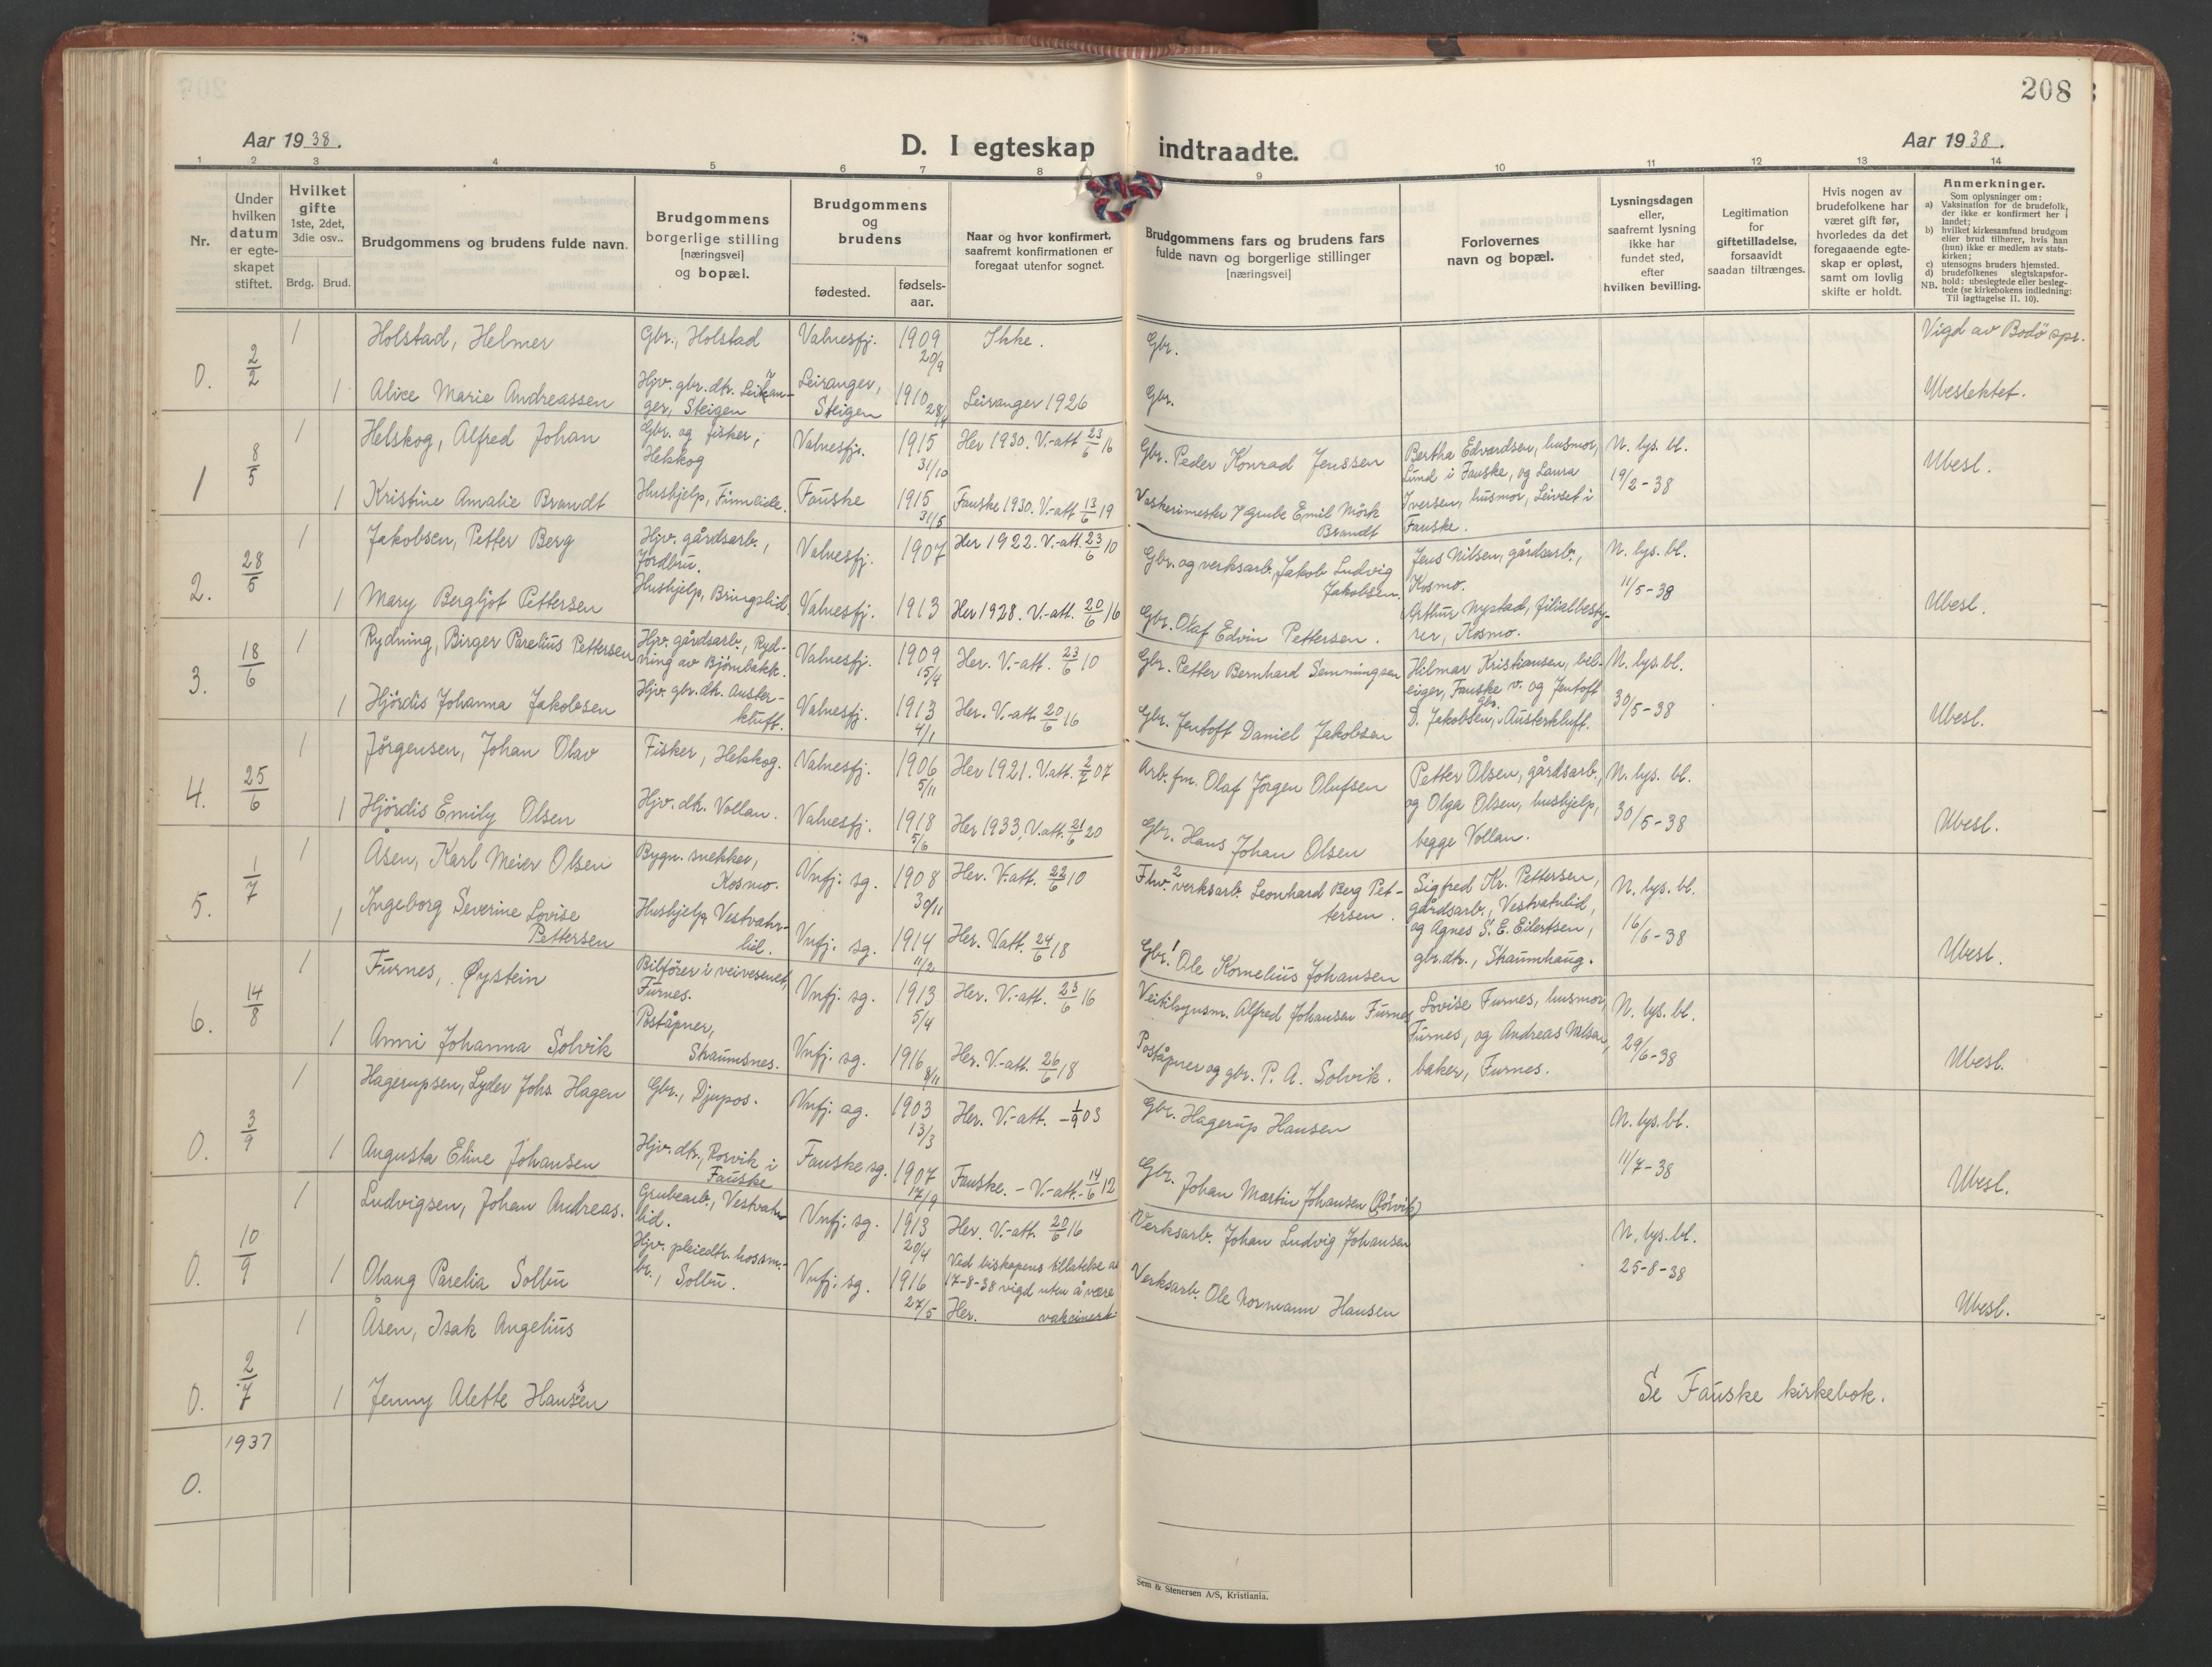 208
Aar 1938.
D. I egteskap indtraadte.
Aar 1938.
1 2 3 4 5 6 7 8 9 10 11 12 13 14
Nr.
Under
hvilken
datum
er egte-
skapet
stiftet.
Hvilket
gifte
1ste, 2det,
3die osv..
Brdg. Brud.
Brudgommens og brudens fulde navn.
Brudgommens
borgerlige stilling
[næringsvei]
og bopæl.
Brudgommens
og
brudens
fødested.
fødsels-
aar.
Naar og hvor konfirmert,
saafremt konfirmationen er
foregaat utenfor sognet.
Brudgommens fars og brudens fars
fulde navn og borgerlige stillinger
[næringsvei]
Forlovernes
navn og bopæl.
Lysningsdagen
eller,
saafremt lysning
ikke har
fundet sted,
efter
hvilken bevilling.
Legitimation
for
giftetilladelse,
forsaavidt
saadan tiltrænges.
Hvis nogen av
brudefolkene har
været gift før,
hvorledes da det
foregaaende egte-
skap er opløst,
samt om lovlig
skifte er holdt.
Anmerkninger.
Som oplysninger om:
a) Vaksination for de brudefolk,
der ikke er konfirmert her i
landet;
b) hvilket kirkesamfund brudgom
eller brud tilhører, hvis han
(hun) ikke er medlem av stats-
kirken;
c) utensogns bruders hjemsted.
d) brudefolkenes slegtskapsfor-
hold: ubeslegtede eller besleg-
NB. tede (se kirkebokens indledning:
Til iagttagelse II. 10).
0. 2/2
1 Holstad, Helmer
Gbr., Holstad
Valnesfj.
1909
20/9
Ikke.
Gbr.
Vigd av Bodö spr.
1 Alice Marie Andreassen
Hjv. gbr. dtr. Leiran-
ger, Steigen
Leiranger,
Steigen
1910
Leiranger 1926
Gbr.
Ubeslektet.
1 8/5
1 Helskog, Alfred Johan
Gbr. og fisker,
Helskog
Valnesfj.
1915
31/10
Her 1930. V.-att 23/6 16
Gbr. Peder Konrad Jenssen
Bertha Edvardsen, husmor,
Lund i Fauske, og Laura
Iversen, husmor, Leivset i
Fauske.
N. lys. bl.
19/2-38
Ubesl.
1 Kristine Amalie Brandt
Hushjelp, Finneide.
Fauske
1915
31/5
Fauske 1930. V.-att 13/6 19
Vaskerimester v grube Emil Mörk
Brandt
2. 28/5
1 Jakobsen, Petter Berg
Hjv. gårdsarb.,
Jordbru.
Valnesfj.
1907
Her 1922. V.-att. 23/6 10
Gbr. og verksarb. Jakob Ludvig
Jakobsen.
Jens Nilsen, gårdsarb.,
Kosmo.
Arthur Nystad, filialbesty-
rer, Kosmo.
N. lys. bl.
11/5-38
Ubesl.
1 Mary Bergljot Pettersen
Hushjelp, Bringslid.
Valnesfj.
1913
Her 1928. V.-att. 20/6 16
Gbr. Olaf Edvin Pettersen.
3. 18/6
1 Rydning, Birger Parelius Pettersen
Hjv. gårdsarb., Ryd-
ning av Bjørnbakk.
Valnesfj.
1909
15/4
Her. V.-att. 23/6 10
Gbr. Petter Bernhard Semmingsen
Hilmar Kristiansen, bil-
eiger, Fauske v. og Jentoft
D. Jakobsen, gbr. Austerkluft.
N. lys. bl.
30/5-38
Ubesl.
1 Hjördis Johanna Jakobsen
Hjv. gbr. dtr. Auster-
kluft.
Valnesfj.
1913
4/1
Her. V.-att. 20/6 16
Gbr. Jentoft Daniel Jakobsen
4. 25/6
1 Jörgensen, Johan Olav
Fisker, Helskog.
Valnesfj.
1906
5/11
Her 1921. V.att. 2/7 07
Arb. fm. Olaf Jørgen Olufsen
Petter Olsen, gårdsarb.,
og Olga Olsen, hushjelp,
begge Vollan.
N. lys. bl.
30/5-38
Ubesl.
1 Hjördis Emily Olsen
Hjv. dtr. Vollan.
Valnesfj.
1918
5/6
Her 1933, V.att. 21/6 20
Gbr. Hans Johan Olsen
5. 1/7
1 Åsen, Karl Meier Olsen
Bygn. snekker,
Kosmo.
Vnfj. sg.
1908
30/11
Her. V.att. 22/6 10
2 verksarb. Leonhard Berg Pet-
tersen.
Sigfred Kr. Pettersen,
gårdsarb., Vestvatnlid,
og Agnes S. E. Eilertsen,
gbr.dtr., Straumhaug.
N. lys. bl.
16/6-38
Ubesl.
1 Ingeborg Severine Lovise
Pettersen
Hushjelp, Vestvatn-
lid.
Vnfj. sg.
1914
11/2
Her. V.att. 24/6 18
Gbr. 1 Ole Kornelius Johansen
6. 14/8
1 Furnes, Øystein
Bilförer i veivesenet,
Furnes.
Vnfj. sg.
1913
5/4
Her. V.-att. 23/6 16
Veitilsynsm. Alfred Johansen Furnes
Lovise Furnes, husmor,
Furnes, og Andreas Nilsen,
baker, Furnes.
N. lys. bl.
29/6-38
Ubesl.
1 Anni Johanna Solvik
Poståpner,
Straumsnes.
Vnfj. sg.
1916
8/11
Her. V.-att. 26/6 18
Poståpner og gbr. P. A. Solvik.
0. 3/9
1 Hagerupsen, Lyder Johs. Hagen
Gbr., Djupos.
Vnfj. sg.
1903
13/3
Her. V.-att. - 1/9 03
Gbr. Hagerup Hansen
N. lys. bl.
11/7-38
Ubesl.
1 Augusta Eline Johansen
Hjv. dtr., Rosvik i
Fauske
Fauske sg.
1907
17/9
Fauske. - V.-att. - 14/6 12
Gbr. Johan Martin Johansen (Rösvik)
0. 10/9
1 Ludvigsen, Johan Andreas.
Grubearb., Vestvatn-
lid.
Vnfj. sg.
1913
20/4
Her. V.-att. 20/6 16
Verksarb. Johan Ludvig Johansen
N. lys. bl.
25-8-38
Ubesl.
1 Olaug Parelia Solbu
Hjv. pleiedtr. hos sm.-
br., Solbu.
Vnfj. sg.
1916
27/5
Ved biskopens tillatelse av
17-8-38 vigd uten å være
Her. vaksinert.
Verksarb. Ole Normann Hansen
0. 2/7
1 Åsen, Isak Angelius
1 Jenny Alette Hansen
Se Fauske kirkebok.
1937
0.
Sem & Stenersen A/S, Kristiania.